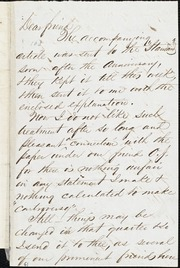 Dear friend,
The accompanying
article was sent to the Standard
soon after the Anniversary,
they kept it till this week
then sent it to me with
the enclosed explanation.
Now I do not like such
treatment after so long and
pleasant connection with the
paper under our friend
for there is nothing
in any statement I make &
nothing calculated to make
controversy.
Still things may be
changed in that quarter so
I send it to thee, as several
of our prominent friends here